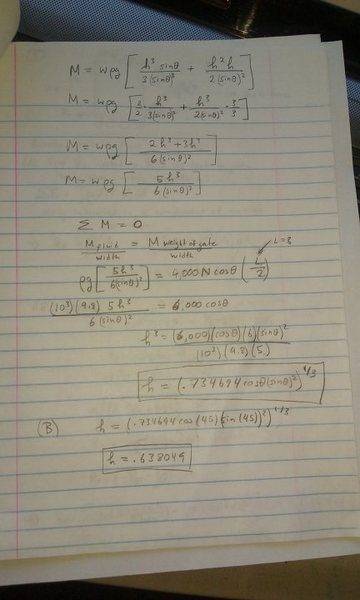 M = wρg [ h³ sinθ / 3(sinθ)³ + h² h / 2(sinθ)² ]
M = wρg [ 2/2 · h³ / 3(sinθ)² + h³ / 2(sinθ)² · 3/3 ]
M = wρg [ 2h³ + 3h³ / 6(sinθ)² ]
M = wρg [ 5h³ / 6(sinθ)² ]
Σ M = 0
L = 3
M fluid / width = M weight of gate / width
ρg [ 5h³ / 6(sinθ)² ] = 4,000 N cosθ ( L / 2 )
(10³)(9.8) 5h³ / 6(sinθ)² = 6,000 cosθ
h³ = (6,000)(cosθ)(6)(sinθ)² / (10³)(9.8)(5)
h = (.734694 cosθ (sinθ)²)^1/3
(B) h = (.734694 cos(45)(sin(45))²)^1/3
h = .638049